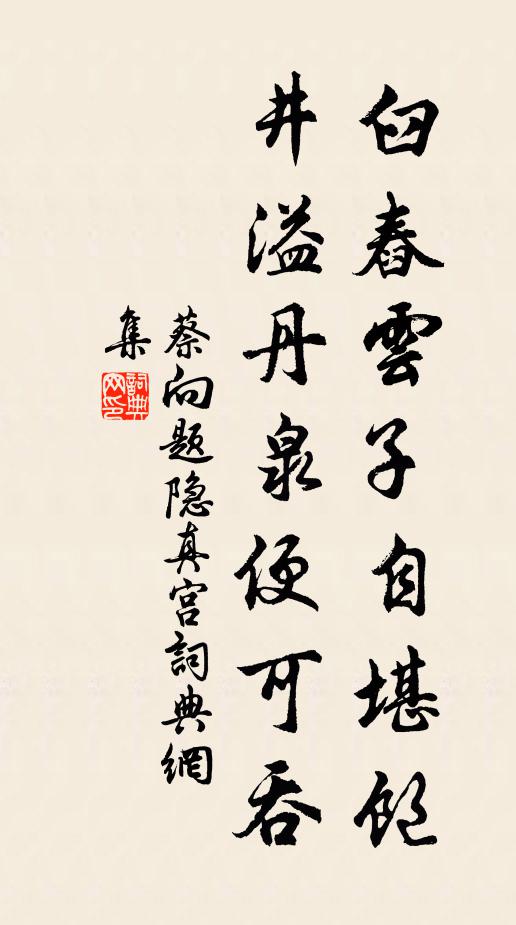 臼舂雲子自堪飽
井溢丹泉便可吞
蔡向题隐真宫詞典網
集
詞典
网印